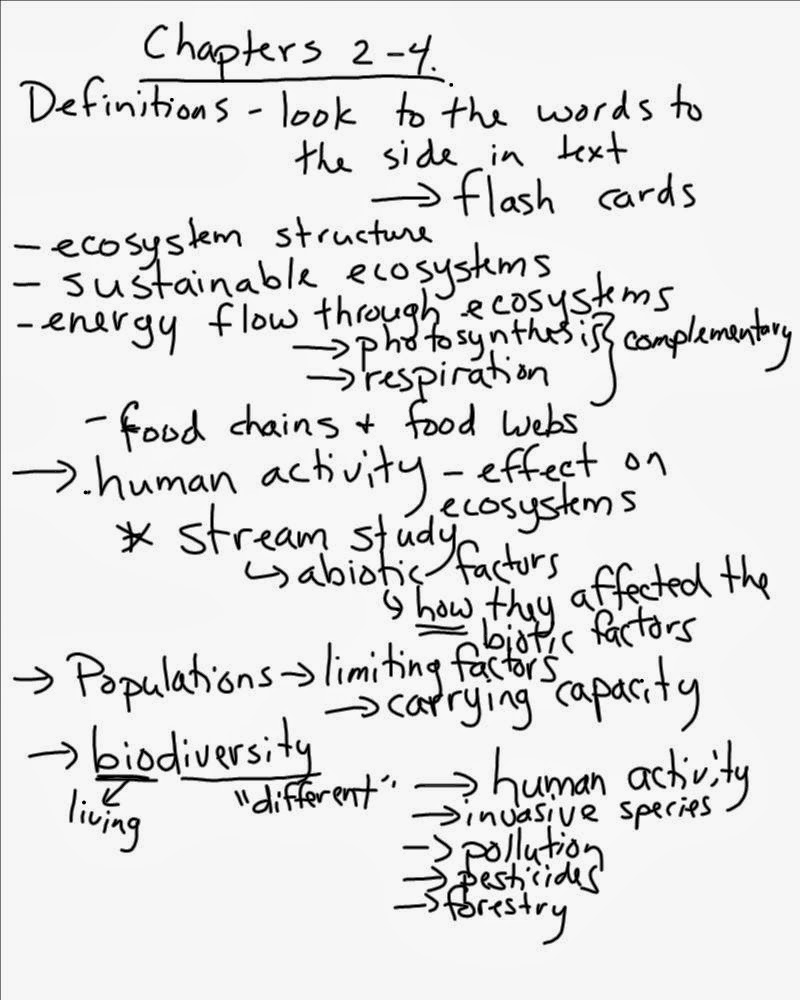 Chapters 2-4.
Definitions - look to the words to
the side in text
→ flash cards
- ecosystem structure
- sustainable ecosystems
- energy flow through ecosystems
→ photosynthesis } complementary
→ respiration
- food chains + food webs
→ human activity - effect on
ecosystems
* stream study
↳ abiotic factors
↳ how they affected the
biotic factors
→ Populations → limiting factors
→ carrying capacity
→ biodiversity
living "different" → human activity
→ invasive species
→ pollution
→ pesticides
→ forestry